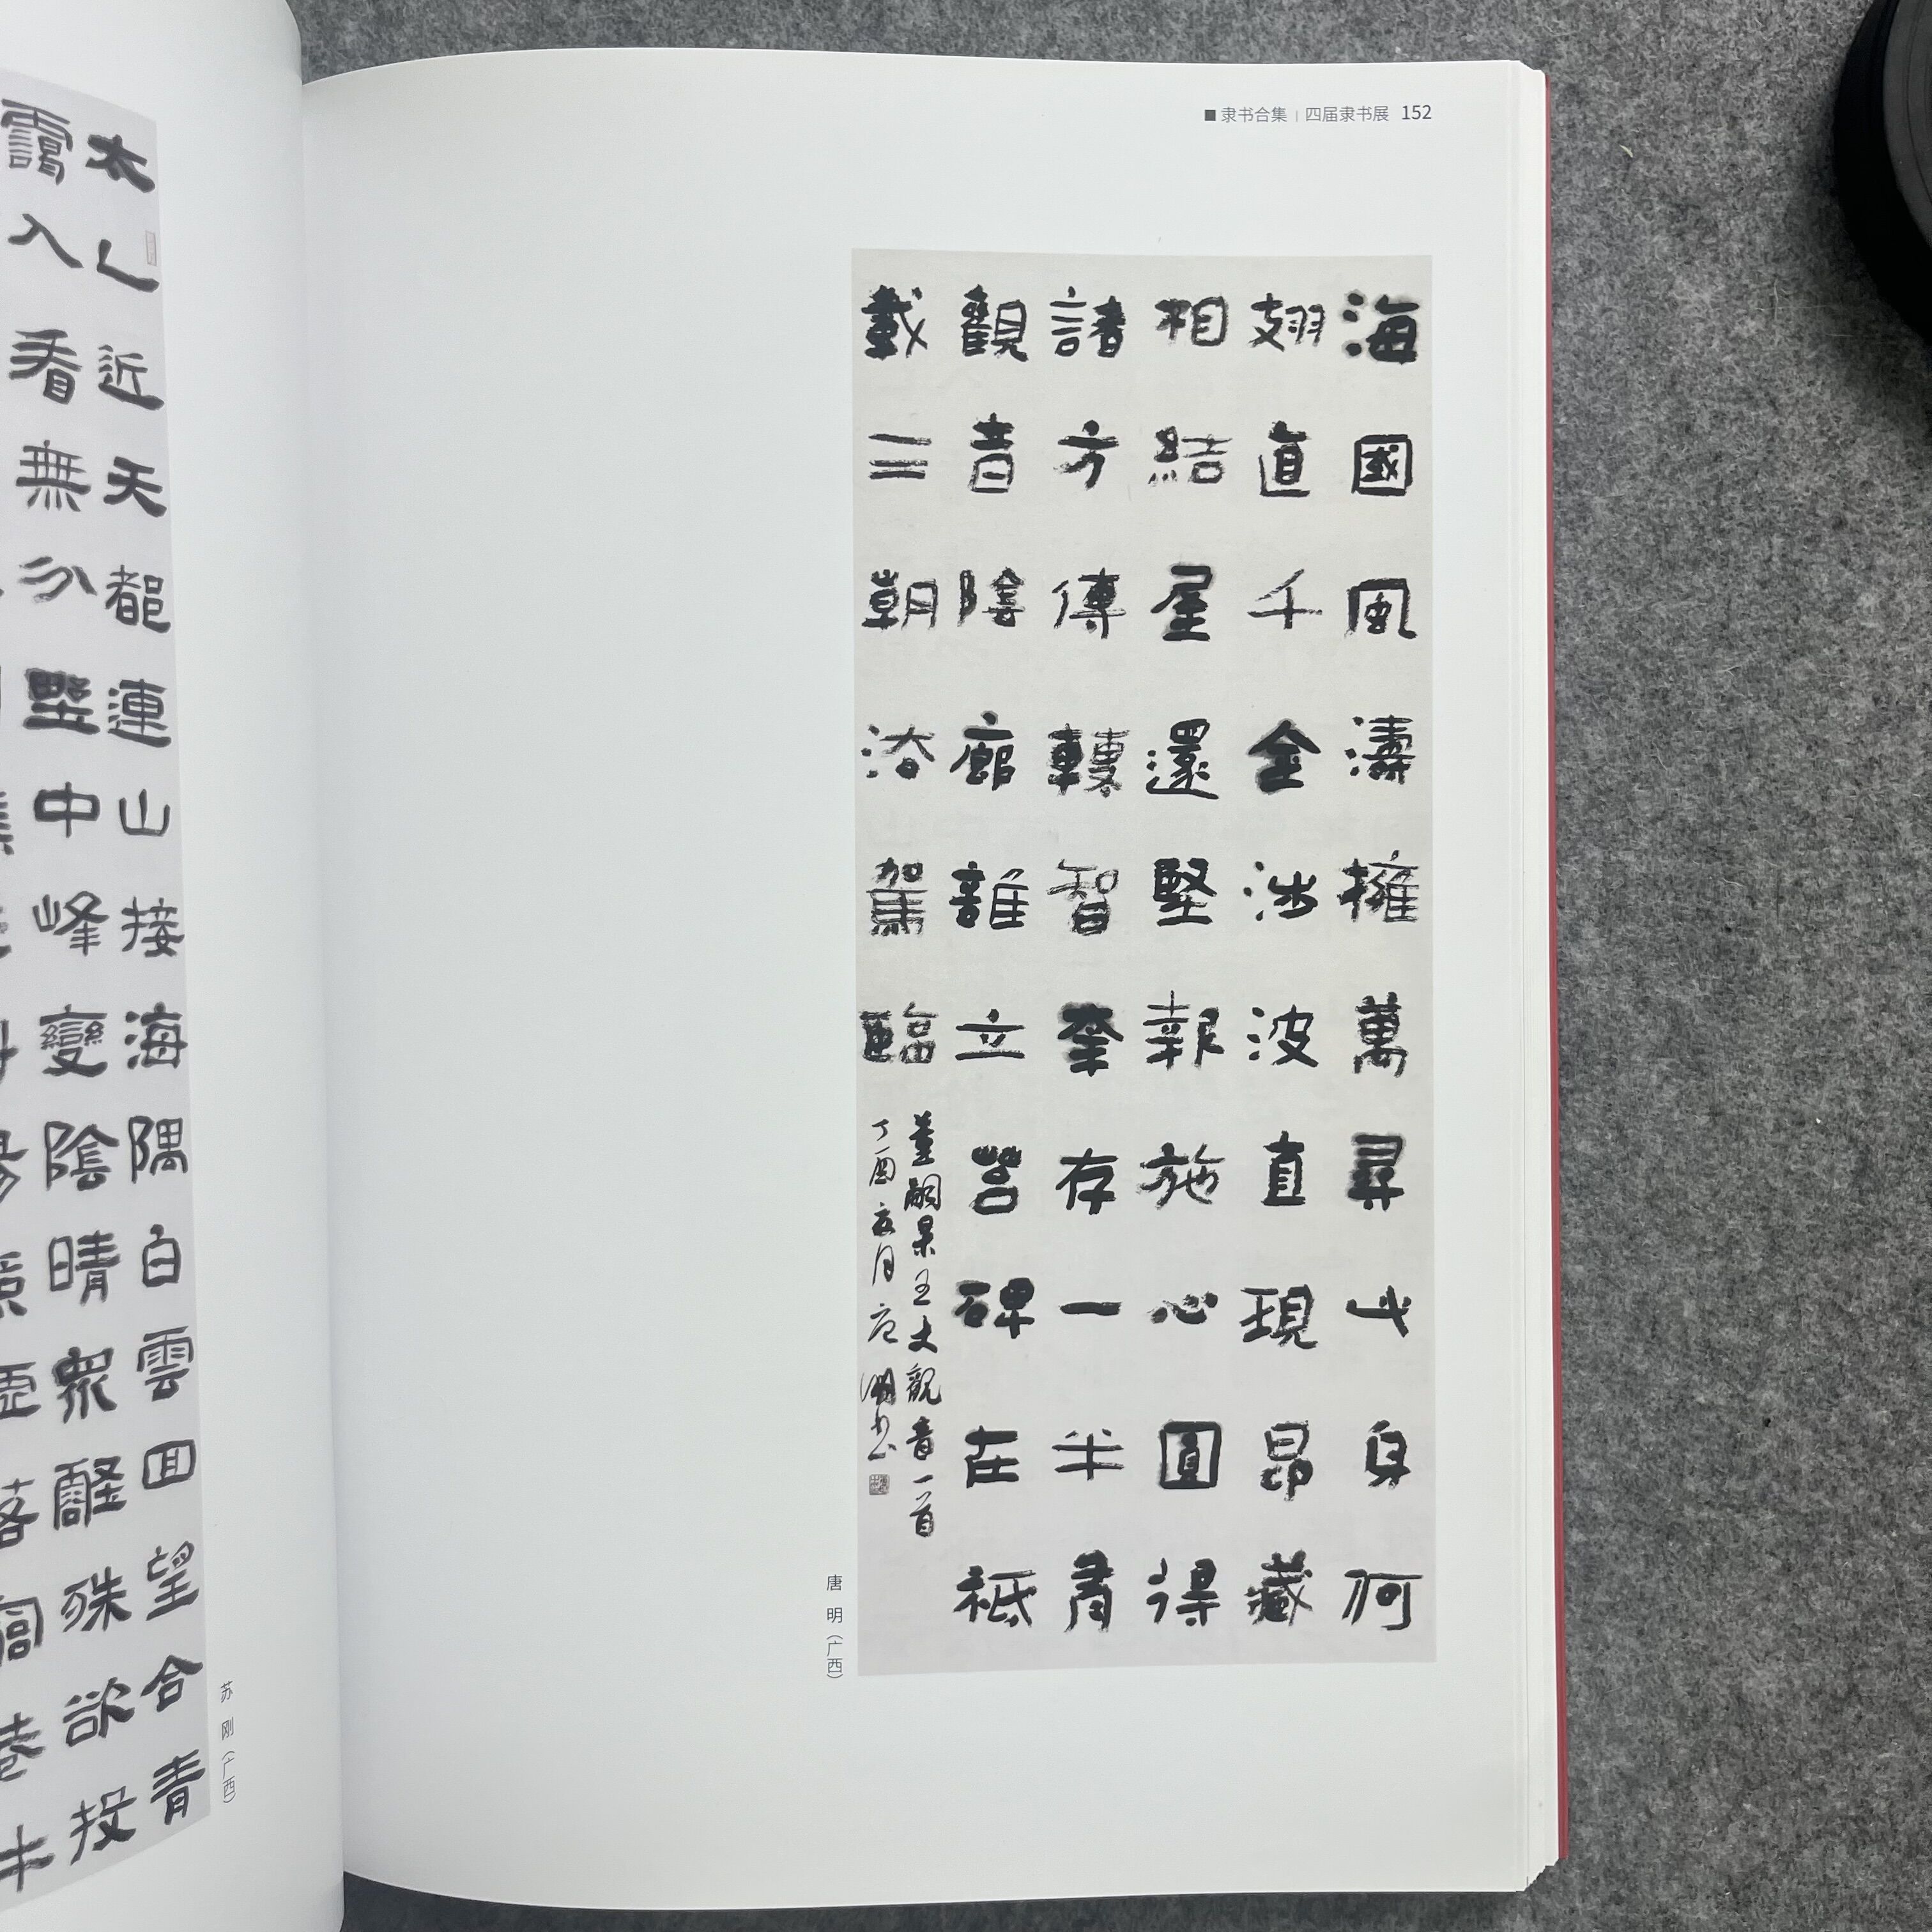 太乙近天都連山接海隅白雲回望合青
靄入看無分壄中峰變陰晴衆壑殊欲投
苏 刚（广西）
■ 隶书合集 | 四届隶书展 152
海國風濤擁萬尋此身何
翅直千金涉波直現昂藏
相結屋還堅報施心圓得
諸方傳轉智拳存一半肯
觀音陰廊誰立碑在祗
載三朝浴駕臨
董嗣杲五丈觀音一首
丁酉月唐明书
唐 明（广西）